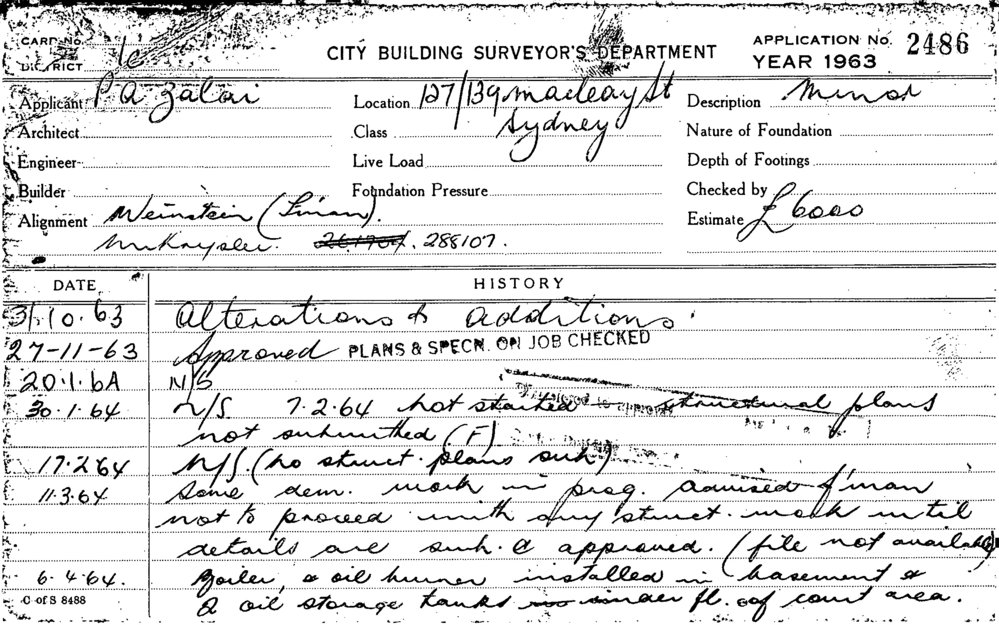 CARD No.
DISTRICT 1c
CITY BUILDING SURVEYOR'S DEPARTMENT
APPLICATION No. 2486
YEAR 1963
Applicant P A Zalai
Location 127/139 Macleay St
Sydney
Description Minor
Architect
Class
Nature of Foundation
Engineer
Live Load
Depth of Footings
Builder
Foundation Pressure
Checked by
Alignment Weinstein
288107.
Estimate £6000
DATE
HISTORY
31.10.63 Alterations & additions.
27-11-63 Approved PLANS & SPECN. ON JOB CHECKED
20.1.64 N/S
30.1.64 N/S. 7.2.64 not started structural plans
not submitted (F)
17.2.64 N/S. (no struct. plans sub)
11.3.64 Some dem. work in prog. advised f'man
not to proceed with any struct. work until
details are sub. & approved. (file not available)
6.4.64. Boiler, & oil burner installed in basement &
2 oil storage tanks under fl. of court area.
C of S 8488